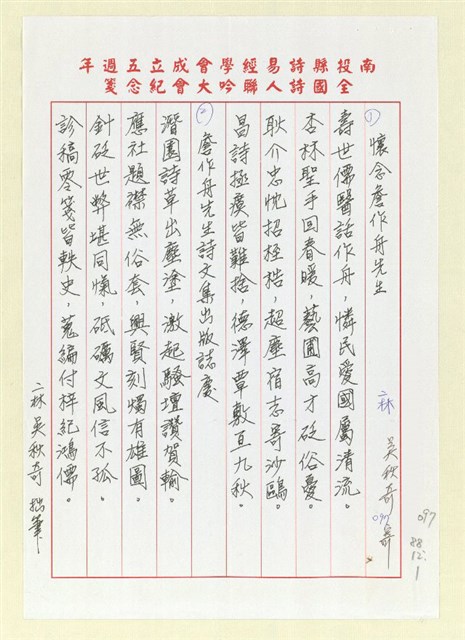 南投縣詩易經學會成立五週年
全國詩人聯吟大會紀念箋
① 懷念詹作舟先生
二林 吳秋奇
097
097
88.12.1
壽世儒醫話作舟，憐民愛國屬清流。
杏林聖手回春暖，藝圃高才砭俗憂。
耿介忠忱招桎梏，超塵宿志寄沙鷗。
昌詩極瘼皆難捨，德澤覃敷亘九秋。
② 詹作舟先生詩文集出版誌慶
潛園詩草出塵塗，激起騷壇讚賀輸。
應社題襟無俗套，興賢刻燭有雄圖。
針砭世弊堪同愾，砥礪文風信不孤。
診稿零箋皆軼史，蒐編付梓紀鴻儒。
二林 吳秋奇 拙筆